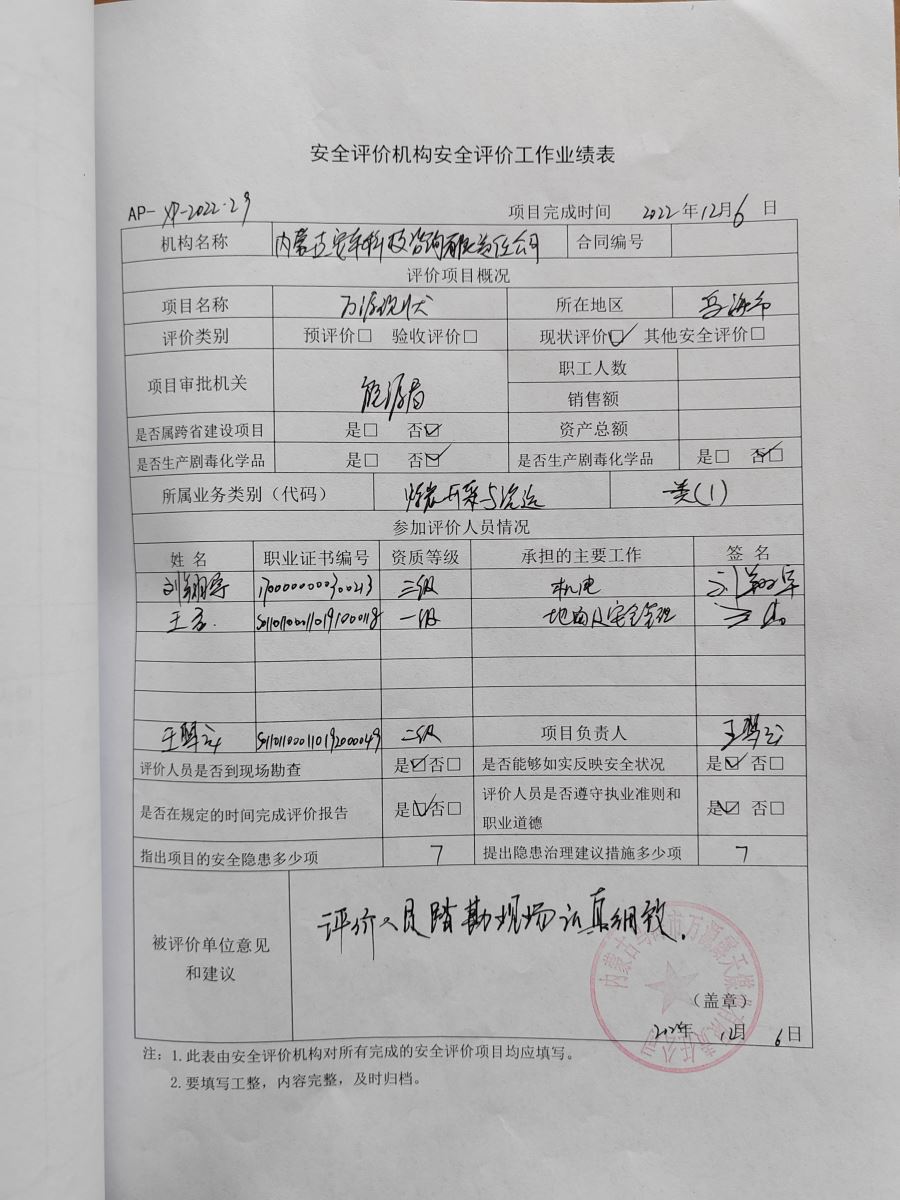 安全评价机构安全评价工作业绩表
AP- XP-2022-29 项目完成时间 2022年12月6日
机构名称 内蒙古安科技咨询有限责任公司 合同编号
评价项目概况
项目名称 万源现状 所在地区 乌海市
评价类别 预评价□ 验收评价□ 现状评价☑ 其他安全评价□
项目审批机关 能源局 职工人数
销售额
是否属跨省建设项目 是□ 否☑ 资产总额
是否生产剧毒化学品 是□ 否☑ 是否生产剧毒化学品 是□ 否☑
所属业务类别（代码） 开采与洗选 一类(1)
参加评价人员情况
姓名 职业证书编号 资质等级 承担的主要工作 签名
刘翔宇 1700000000300213 三级 机电 刘翔宇
王 S011011000110191000118 一级 地面及安全管理
王琴 S011011000110192000049 二级 项目负责人 王琴
评价人员是否到现场勘查 是☑否□ 是否能够如实反映安全状况 是☑ 否□
是否在规定的时间完成评价报告 是☑否□ 评价人员是否遵守执业准则和
职业道德 是☑ 否□
指出项目的安全隐患多少项 7 提出隐患治理建议措施多少项 7
被评价单位意见
和建议
评价人员踏勘现场认真细致.
内蒙古乌海市万源露天煤有限责任公司
（盖章）
2022年 12月 6日
注：1.此表由安全评价机构对所有完成的安全评价项目均应填写。
2.要填写工整，内容完整，及时归档。